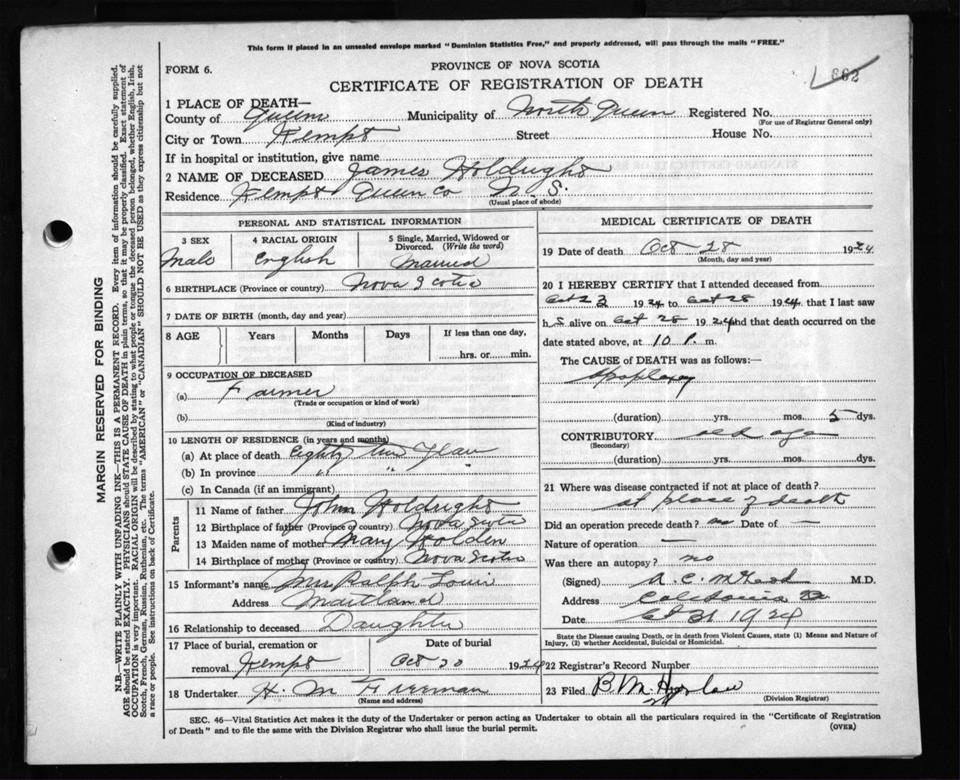 This form if placed in an unsealed envelope marked "Dominion Statistics Free," and properly addressed, will pass through the mails "FREE."
FORM 6.
PROVINCE OF NOVA SCOTIA
CERTIFICATE OF REGISTRATION OF DEATH
662
1 PLACE OF DEATH—
County of Queens Municipality of North Queen Registered No.
(For use of Registrar General only)
City or Town Kempt Street House No.
If in hospital or institution, give name
2 NAME OF DECEASED James Holdright
Residence Kempt Queen Co N. S.
(Usual place of abode)
PERSONAL AND STATISTICAL INFORMATION
3 SEX 4 RACIAL ORIGIN 5 Single, Married, Widowed or Divorced. (Write the word)
Male English Married
6 BIRTHPLACE (Province or country) Nova Scotia
7 DATE OF BIRTH (month, day and year)
8 AGE Years Months Days If less than one day,
hrs. or min.
9 OCCUPATION OF DECEASED
(a) Farmer
(Trade or occupation or kind of work)
(b)
(Kind of industry)
10 LENGTH OF RESIDENCE (in years and months)
(a) At place of death eighty
(b) In province " " "
(c) In Canada (if an immigrant)
Parents
11 Name of father John Holdright
12 Birthplace of father (Province or country) Nova Scotia
13 Maiden name of mother Mary Holden
14 Birthplace of mother (Province or country) Nova Scotia
15 Informant's name Mrs Ralph
Address Maitland
16 Relationship to deceased Daughter
17 Place of burial, cremation or removal Kempt Date of burial Oct 30 1924
18 Undertaker H. M Freeman
(Name and address)
MEDICAL CERTIFICATE OF DEATH
19 Date of death Oct 28 1924
(Month, day and year)
20 I HEREBY CERTIFY that I attended deceased from
Oct 23 1924 to Oct 28 1924, that I last saw
h s alive on Oct 28 1924 and that death occurred on the
date stated above, at 10 P. m.
The CAUSE of DEATH was as follows:
Apoplexy
(duration) yrs. mos. 5 dys.
CONTRIBUTORY old age
(Secondary)
(duration) yrs. mos. dys.
21 Where was disease contracted if not at place of death?
at place of death
Did an operation precede death? no Date of —
Nature of operation —
Was there an autopsy? no
(Signed) A. C. M.D.
Address Caledonia
Date Oct 31 1924
State the Disease causing Death, or in death from Violent Causes, state (1) Means and Nature of
Injury, (2) whether Accidental, Suicidal or Homicidal.
22 Registrar's Record Number
23 Filed B. M.
(Division Registrar)
SEC. 46—Vital Statistics Act makes it the duty of the Undertaker or person acting as Undertaker to obtain all the particulars required in the "Certificate of Registration
of Death" and to file the same with the Division Registrar who shall issue the burial permit. (OVER)
MARGIN RESERVED FOR BINDING
N.B.—WRITE PLAINLY WITH UNFADING INK—THIS IS A PERMANENT RECORD. Every item of information should be carefully supplied.
AGE should be stated EXACTLY. PHYSICIANS should STATE CAUSE OF DEATH in plain terms, so that it may be properly classified. Exact statement of
OCCUPATION is very important. RACIAL ORIGIN will be described by stating to what people or tongue the deceased person belonged, whether English, Irish,
Scotch, French, German, Russian, Ruthenian, etc. The terms "AMERICAN" or "CANADIAN" SHOULD NOT BE USED as they express citizenship but not
a race or people. See instructions on back of Certificate.